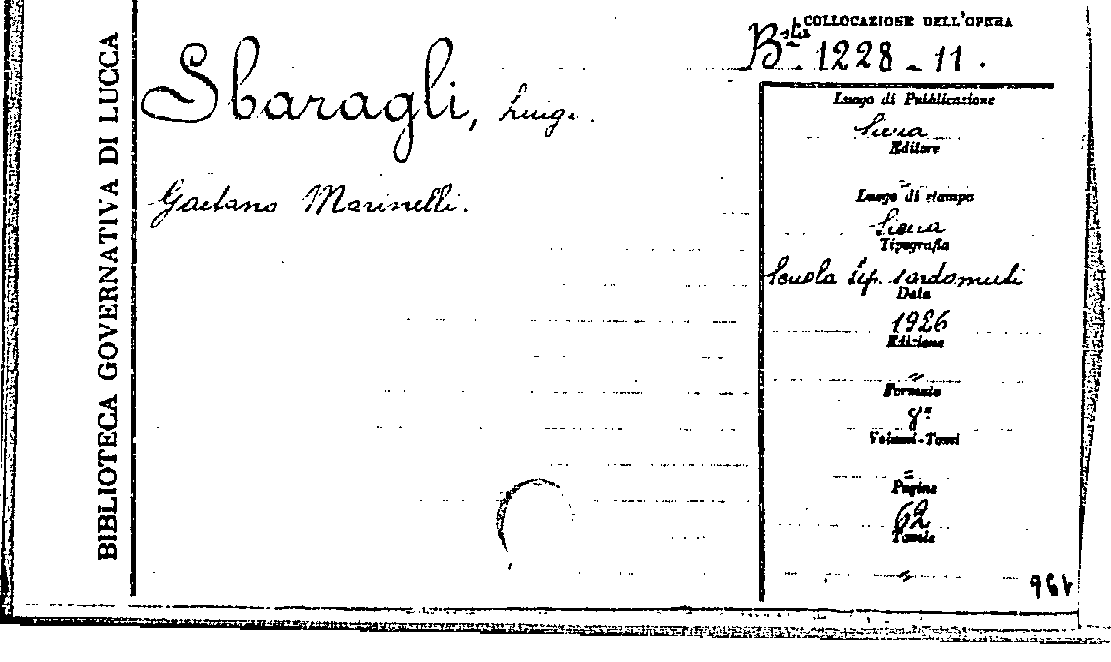 BIBLIOTECA GOVERNATIVA DI LUCCA
Sbaragli, Luigi.
Gaetano Marinelli.
COLLOCAZIONE DELL'OPERA
B.ta 1228 - 11.
Luogo di Pubblicazione
Siena
Editore
"
Luogo di stampa
Siena
Tipografia
Scuola Tip. sordomuti
Data
1926
Edizione
"
Formato
8°
Volumi-Tomi
=
Pagine
62
Tavole
"